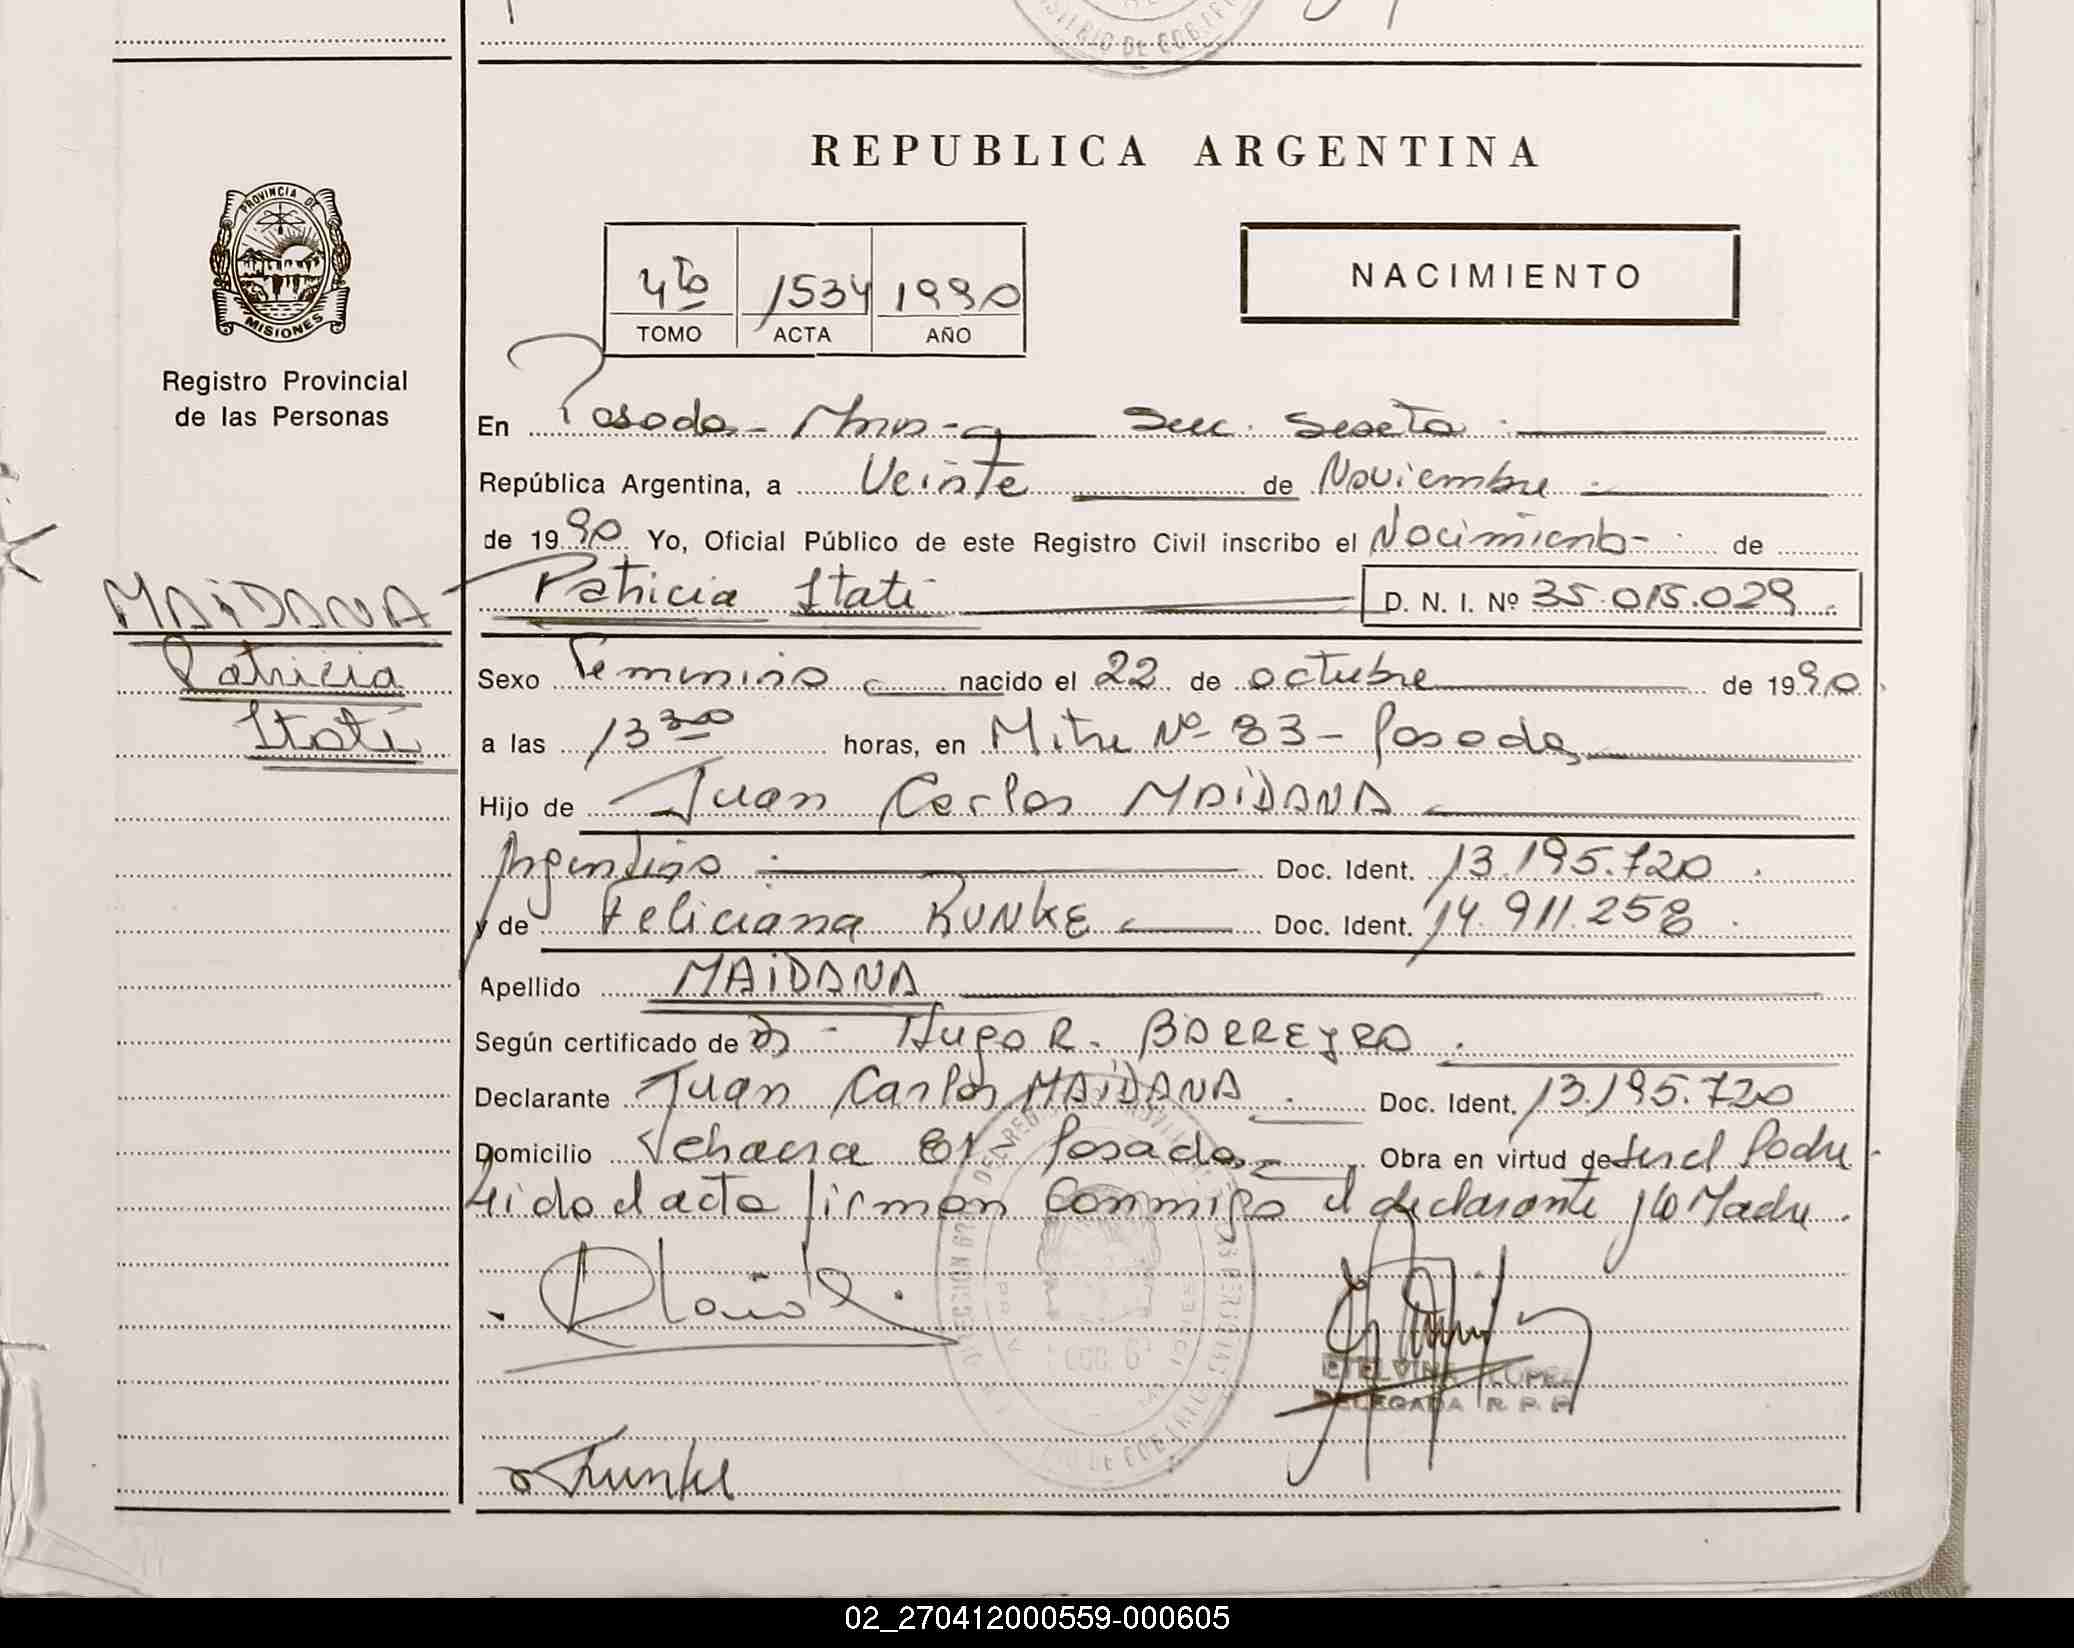 REPUBLICA ARGENTINA
PROVINCIA DE
MISIONES
Registro Provincial
de las Personas
4to 1534 1990
TOMO ACTA AÑO
NACIMIENTO
En Posadas - Mnes - Secc. Sexta
República Argentina, a Veinte de Noviembre
de 1990 Yo, Oficial Público de este Registro Civil inscribo el Nacimiento - de
MAIDANA
Patricia
Itatí
Patricia Itatí D. N. I. Nº 35.015.029
Sexo Femenino nacido el 22 de octubre de 1990
a las 13 30 horas, en Mitre Nº 83 - Posadas
Hijo de Juan Carlos MAIDANA
Argentino Doc. Ident. 13.195.720
y de Feliciana KUNKE Doc. Ident. 14.911.258
Apellido MAIDANA
Según certificado de Dr - Hugo R. BORREYRO
Declarante Juan Carlos MAIDANA Doc. Ident. 13.195.720
Domicilio Posadas Obra en virtud de ser el Padre
Leido el acta firman conmigo el declarante y la Madre.
ETELVINA LOPEZ
DELEGADA R. P. P.
Kunke
02_270412000559-000605